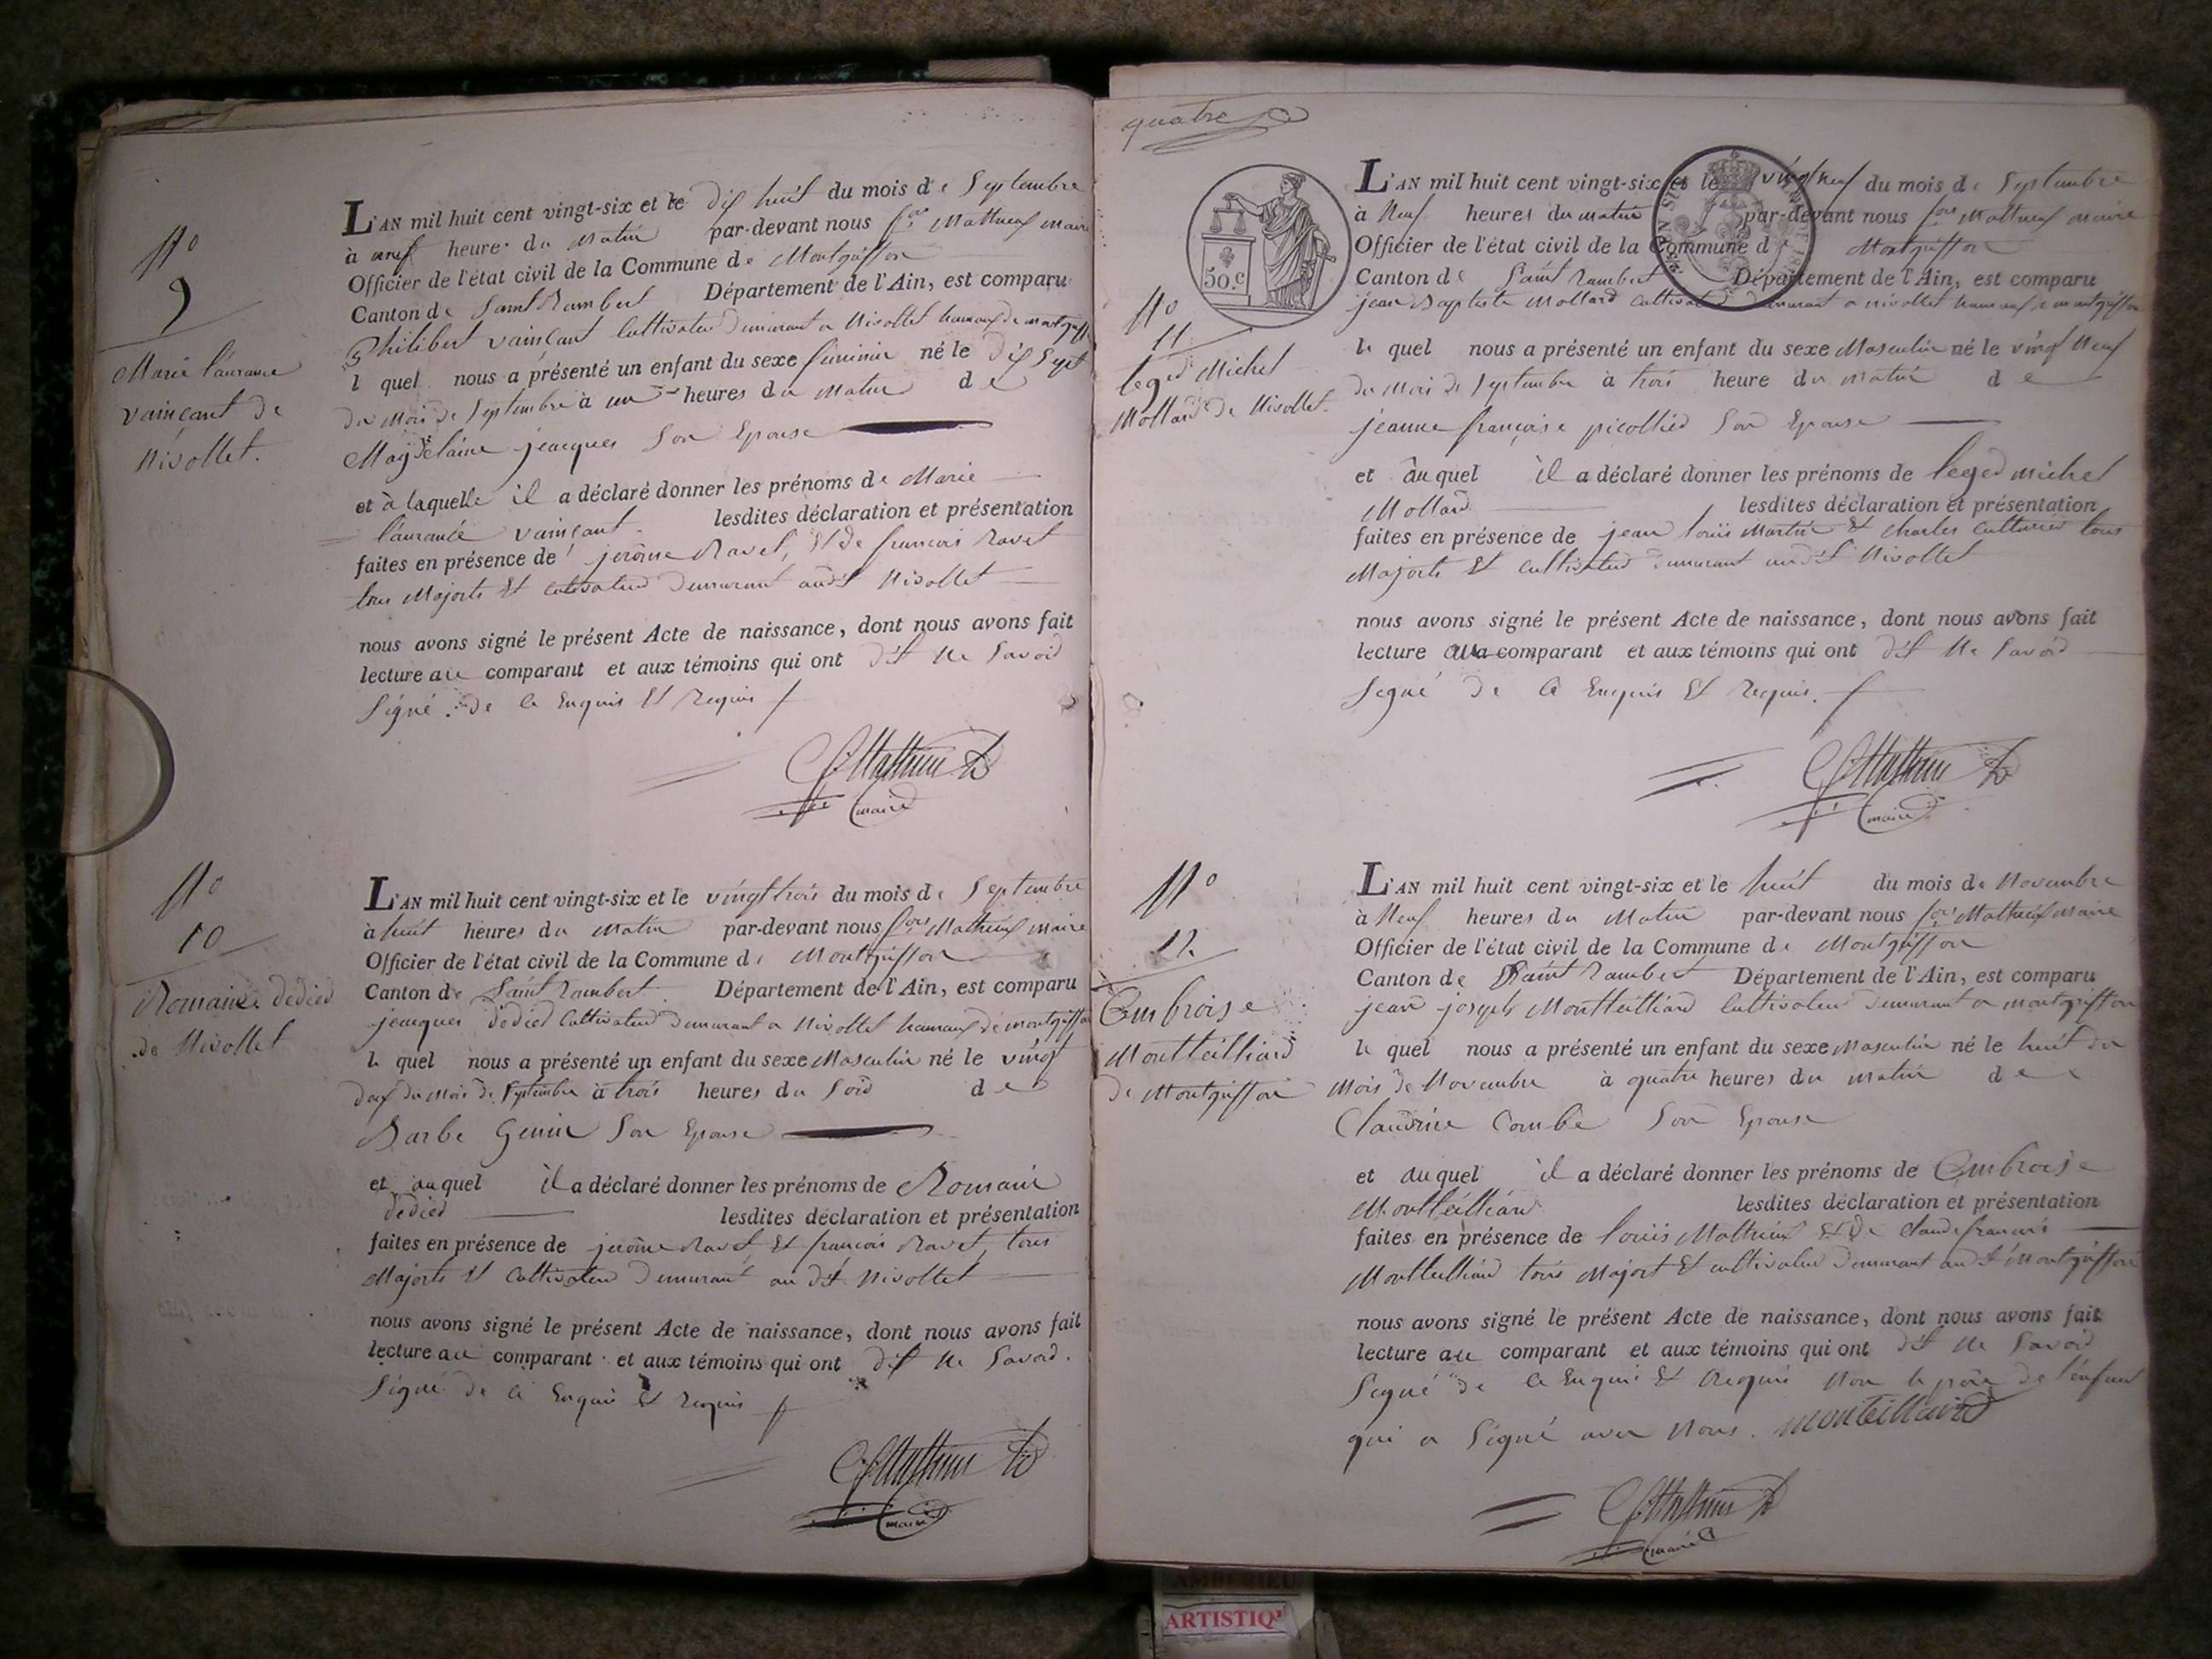 N.o
9
Marie Laurance
vainçant de
Nivollet.
L'AN mil huit cent vingt-six et le dix huit du mois de Septembre
à heures du Matin par-devant nous f.ois Mathieux maire
Officier de l'état civil de la Commune de Montgriffon
Canton de Saint Rambert Département de l'Ain, est comparu
Philibert vainçant Cultivateur demurant a Nivollet hamaux de montgriffon
l quel nous a présenté un enfant du sexe féminin né le dix Sept
du Mois de Septembre à une heures du Matin de
Magdelaine jeacques Son Epouse
et à laquelle il a déclaré donner les prénoms de Marie
laurance vainçant lesdites déclaration et présentation
faites en présence de jerôme Ravet, Et de francois Ravet
tous Majorts Et Cultivateur demurant audit Nivollet
nous avons signé le présent Acte de naissance, dont nous avons fait
lecture au comparant et aux témoins qui ont dit Ne Savoir
Signé de ce Enquis Et Requis
Mathieux
maire
N.o
10
Romain dedier
de Nivollet
L'AN mil huit cent vingt-six et le vingt trois du mois de Septembre
à huit heures du Matin par-devant nous f.ois Mathieux maire
Officier de l'état civil de la Commune de Montgriffon
Canton de Saint Rambert Département de l'Ain, est comparu
jeacques dedier Cultivateur demurant a Nivollet hamaux de montgriffon
le quel nous a présenté un enfant du sexe Masculin né le vingt
deux du Mois de Septembre à trois heures du Soir de
Barbe Genin Son Epouse
et au quel il a déclaré donner les prénoms de Romain
dedier lesdites déclaration et présentation
faites en présence de jerôme Ravet Et françois Ravet, tous
Majorts Et Cultivateur demurant au dit Nivollet
nous avons signé le présent Acte de naissance, dont nous avons fait
lecture au comparant et aux témoins qui ont dit Ne Savoir.
Signé de ce Enquis Et Requis
Mathieux
maire
quatre
50.c
N.o
11
leger Michel
Mollard de Nivollet.
L'AN mil huit cent vingt-six et le vingt neuf du mois de Septembre
à Neuf heures du matin par-devant nous f.ois Mathieux maire
Officier de l'état civil de la Commune de Montgriffon
Canton de Saint Rambert Département de l'Ain, est comparu
jean Baptiste Mollard Cultivateur demurant a nivollet hamaux de montgriffon
le quel nous a présenté un enfant du sexe Masculin né le vingt Neuf
du Mois de Septembre à trois heure du Matin de
jeanne françoise picollier Son Epouse
et au quel il a déclaré donner les prénoms de leger michel
Mollard lesdites déclaration et présentation
faites en présence de jean louis Martin Et Charles tous
Majorts Et Cultivateur demurant audit Nivollet
nous avons signé le présent Acte de naissance, dont nous avons fait
lecture au comparant et aux témoins qui ont dit Ne Savoir
Signé de ce Enquis Et Requis.
Mathieux
maire
N.o
12
Ambroise
Montteilliard
de Montgriffon
L'AN mil huit cent vingt-six et le huit du mois de Novembre
à Neuf heures du Matin par-devant nous f.ois Mathieux maire
Officier de l'état civil de la Commune de Montgriffon
Canton de Saint Rambert Département de l'Ain, est comparu
jean joseph Montteilliard Cultivateur demurant a montgriffon
le quel nous a présenté un enfant du sexe Masculin né le huit du
Mois de Novembre à quatre heures du matin de
Claudine Combe Son Epouse
et au quel il a déclaré donner les prénoms de Ambroise
Montteilliard lesdites déclaration et présentation
faites en présence de louis Mathieux Et de Claude francois
Montteilliard tous Majort Et cultivateur demurant audit Montgriffon
nous avons signé le présent Acte de naissance, dont nous avons fait
lecture au comparant et aux témoins qui ont dit Ne Savoir
Signé de ce Enquis Et Requis Non le père de l'enfant
qui a Signé avec Nous. monteilliard
Mathieux
maire
ARTISTIQ